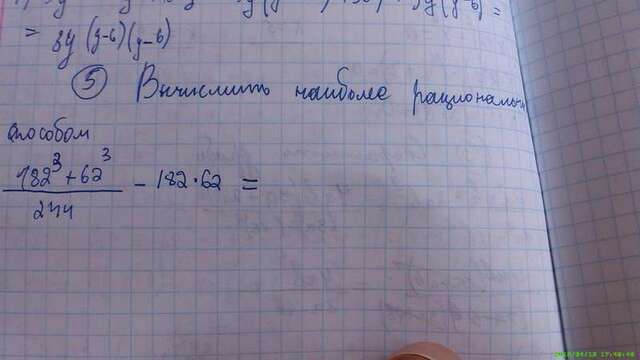 = 3y (y-6)(y-6)
⑤ Вычислить наиболее рациональным
способом
182³+62³
244
- 182·62 =